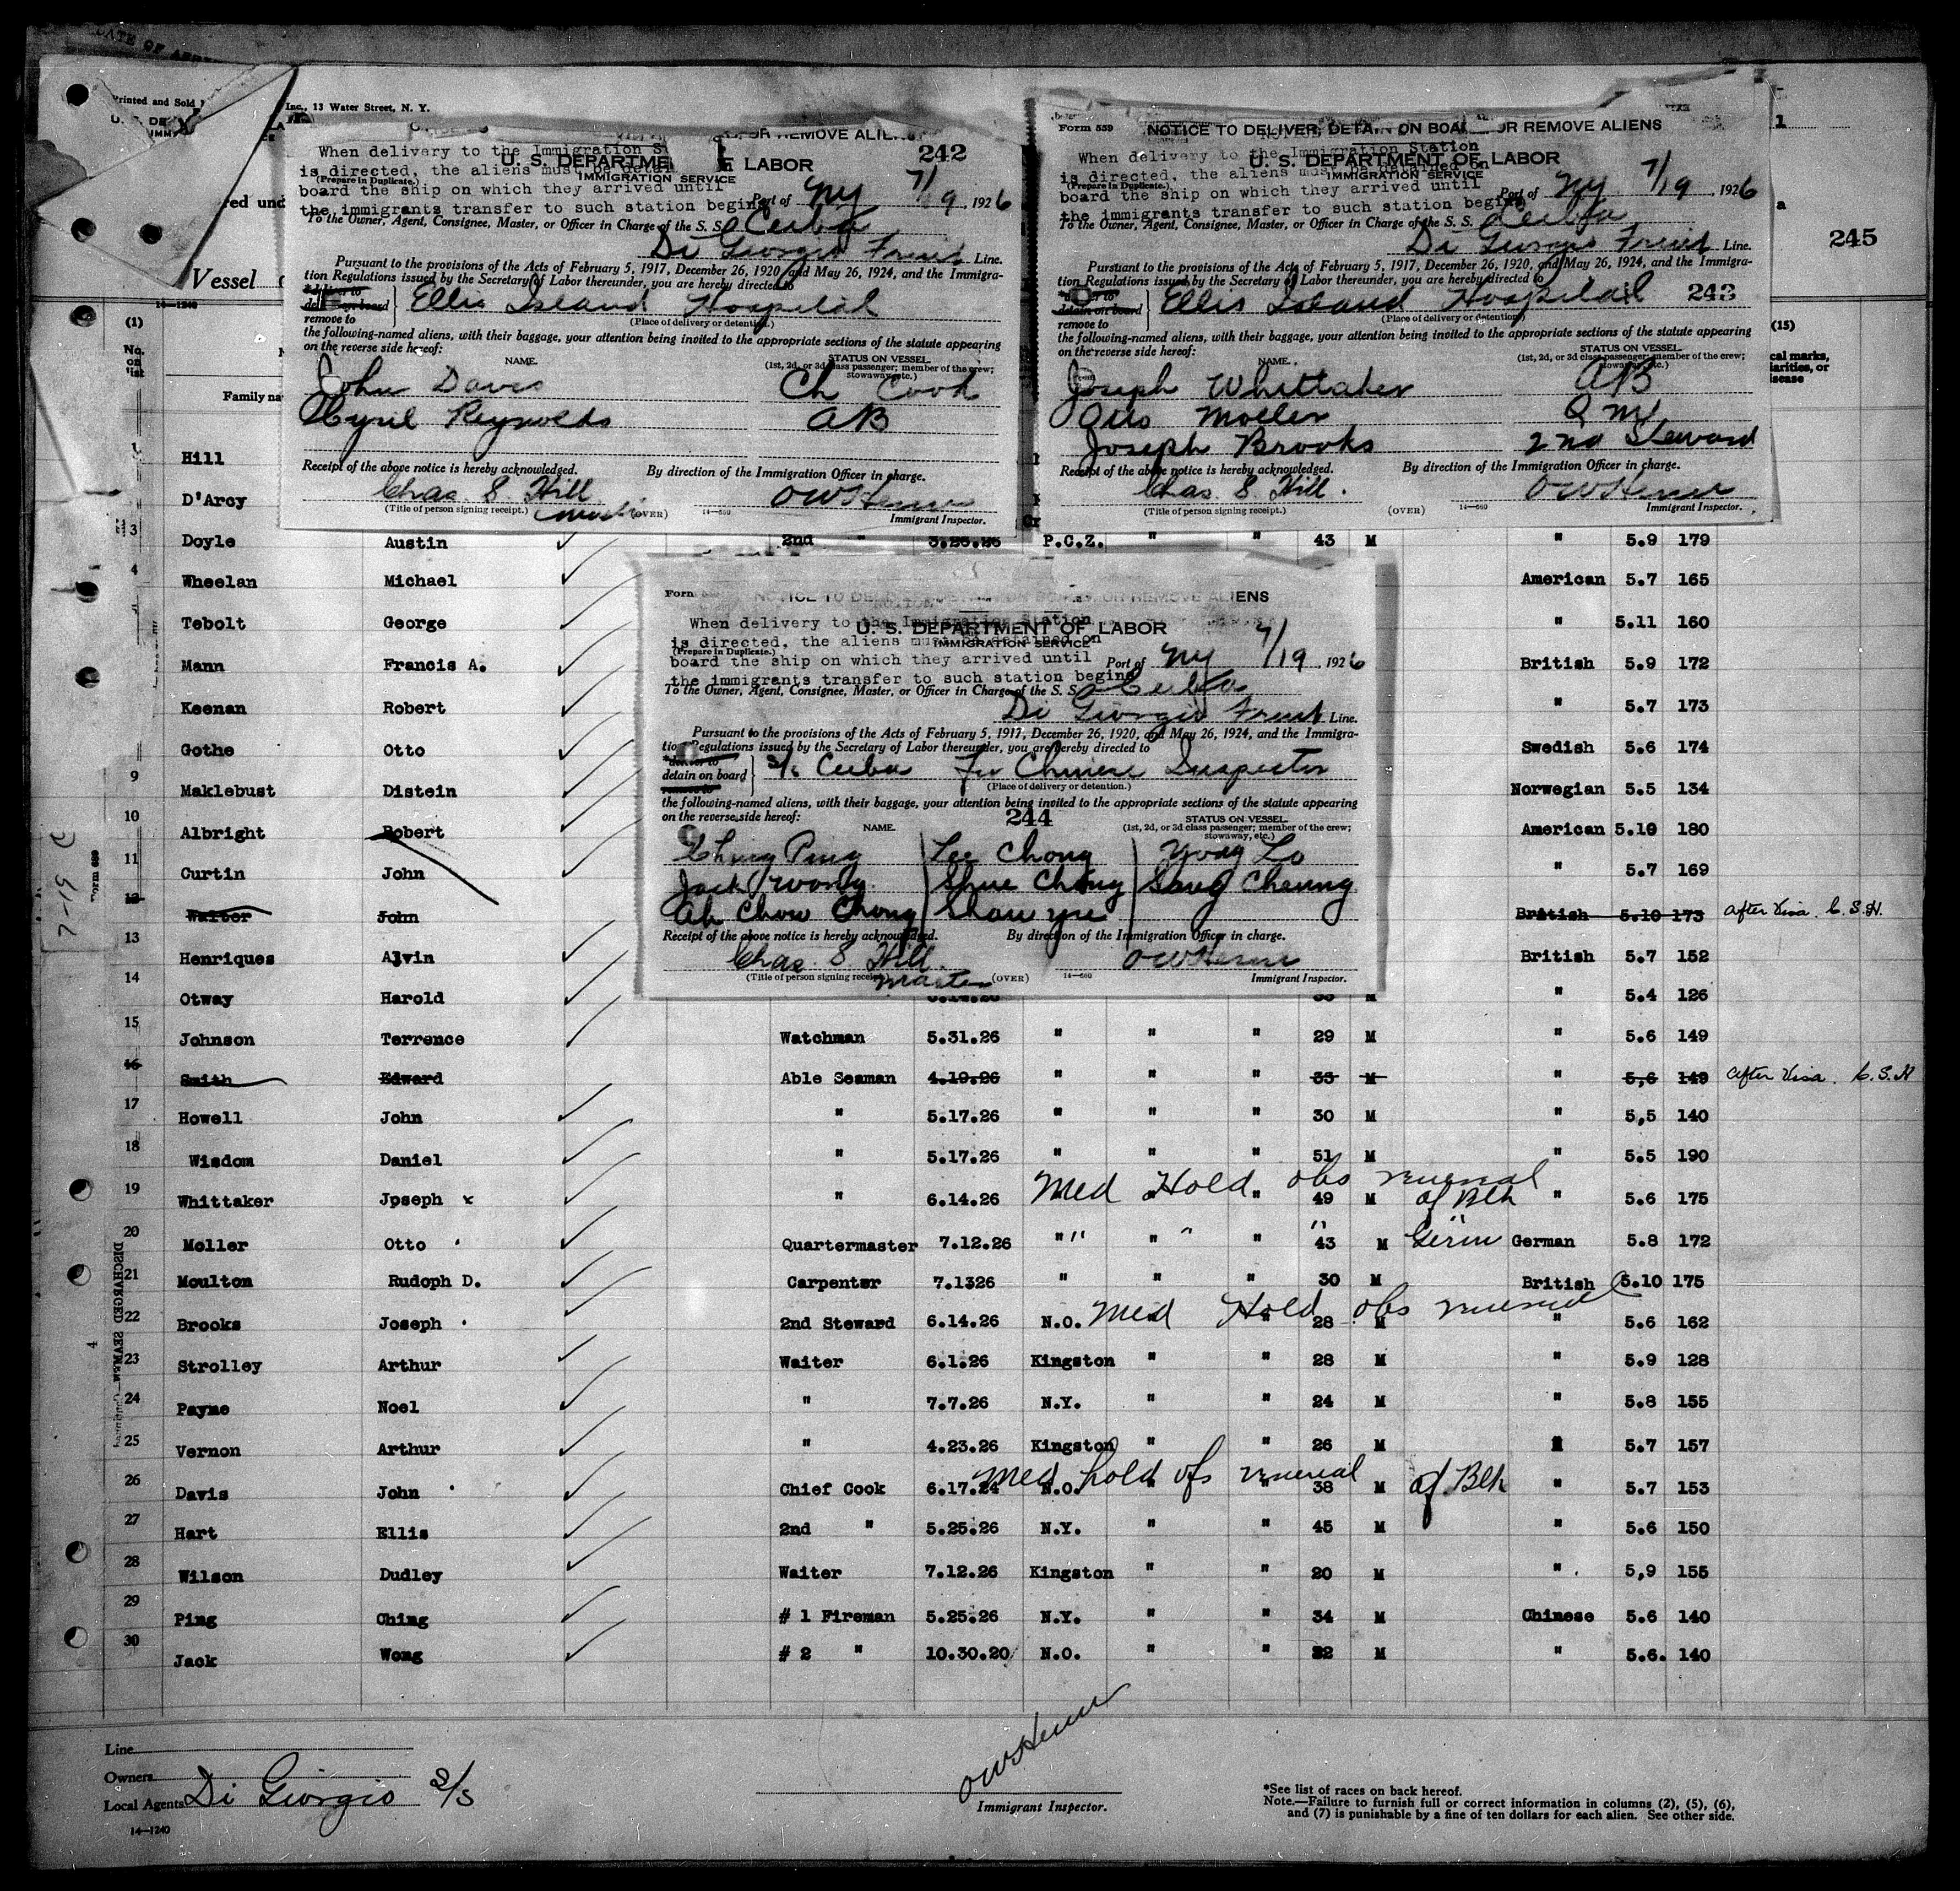 DATE OF
Printed and Sold
Inc., 13 Water Street, N. Y.
U. S. DE
IMMI
red und
Vessel
14—1240
(1)
No.
on
list
Family na
242
OR REMOVE ALIENS
When delivery to the Immigration S
is directed, the aliens must be detai
board the ship on which they arrived until
the immigrants transfer to such station begins
U. S. DEPARTME
F LABOR
IMMIGRATION SERVICE
(Prepare in Duplicate.)
Port of NY 7/19, 1926
To the Owner, Agent, Consignee, Master, or Officer in Charge of the S. S. Ceiba
Di Giorgio Fruit Line.
Pursuant to the provisions of the Acts of February 5, 1917, December 26, 1920, and May 26, 1924, and the Immigra-
tion Regulations issued by the Secretary of Labor thereunder, you are hereby directed to
*deliver to
detain on board
remove to
Ellis Island Hospital
(Place of delivery or detention.)
the following-named aliens, with their baggage, your attention being invited to the appropriate sections of the statute appearing
on the reverse side hereof:
NAME.
STATUS ON VESSEL
(1st, 2d, or 3d class passenger; member of the crew;
stowaway, etc.)
John Davis Ch Cook
Cyril Reynolds AB
Receipt of the above notice is hereby acknowledged. By direction of the Immigration Officer in charge.
Chas. S. Hill OWHeme
(Title of person signing receipt.) master (OVER) 14—680 Immigrant Inspector.
Form 559 NOTICE TO DELIVER, DETAIN ON BOARD OR REMOVE ALIENS
When delivery to the Immigration Station
is directed, the aliens must be detained on
board the ship on which they arrived until
the immigrants transfer to such station begins
U. S. DEPARTMENT OF LABOR
IMMIGRATION SERVICE
(Prepare in Duplicate.)
Port of NY 7/19 1926
To the Owner, Agent, Consignee, Master, or Officer in Charge of the S. S. Ceiba
Di Giorgio Fruit Line.
Pursuant to the provisions of the Acts of February 5, 1917, December 26, 1920, and May 26, 1924, and the Immigra-
tion Regulations issued by the Secretary of Labor thereunder, you are hereby directed to
detain on board
remove to
Ellis Island Hospital 243
(Place of delivery or detention)
the following-named aliens, with their baggage, your attention being invited to the appropriate sections of the statute appearing
on the reverse side hereof:
NAME.
STATUS ON VESSEL
(1st, 2d, or 3d class passenger; member of the crew;
stowaway, etc.)
Joseph Whittaker AB
Otto Moller QM
Joseph Brooks 2nd Steward
Receipt of the above notice is hereby acknowledged. By direction of the Immigration Officer in charge.
Chas. S. Hill. OWHeme
(Title of person signing receipt.) (OVER) 14—680 Immigrant Inspector.
1
a
245
(15)
cal marks,
larities, or
sease
Hill
D'Arcy
3 Doyle Austin 2nd " 3.26.26 P.C.Z. " " 43 M " 5.9 179
4 Wheelan Michael American 5.7 165
Tebolt George " 5.11 160
Mann Francis A. British 5.9 172
Keenan Robert " 5.7 173
Gothe Otto Swedish 5.6 174
9 Maklebust Distein Norwegian 5.5 134
10 Albright Robert American 5.10 180
11 Curtin John " 5.7 169
12 Walter John British 5.10 173 after Visa. C. S. H.
13 Henriques Alvin British 5.7 152
14 Otway Harold M " 5.4 126
Form NOTICE TO DELI OR REMOVE ALIENS
When delivery to the Immigration Station
is directed, the aliens must be detained on
board the ship on which they arrived until
the immigrants transfer to such station begins
U. S. DEPARTMENT OF LABOR
IMMIGRATION SERVICE
(Prepare in Duplicate.)
Port of NY 7/19, 1926
To the Owner, Agent, Consignee, Master, or Officer in Charge of the S. S. Ceiba
Di Giorgio Fruit Line.
Pursuant to the provisions of the Acts of February 5, 1917, December 26, 1920, and May 26, 1924, and the Immigra-
tion Regulations issued by the Secretary of Labor thereunder, you are hereby directed to
*deliver to
detain on board
remove to
S/S Ceiba for Chinese Inspector
(Place of delivery or detention.)
the following-named aliens, with their baggage, your attention being invited to the appropriate sections of the statute appearing
on the reverse side hereof: 244
NAME.
STATUS ON VESSEL
(1st, 2d, or 3d class passenger; member of the crew;
stowaway, etc.)
Ching Ping Lee Chong Yong Lo
Jack Wong Shue Chong Sang Cheung
Ah Chow Chong Shau yee
Receipt of the above notice is hereby acknowledged. By direction of the Immigration Officer in charge.
Chas. S. Hill. OWHeme
(Title of person signing receipt.) master (OVER) 14—680 Immigrant Inspector.
15 Johnson Terrence Watchman 5.31.26 " " " 29 M " 5.6 149
16 Smith Edward Able Seaman 4.19.26 " " " 33 M " 5,6 149 after Visa. C. S. H
17 Howell John " 5.17.26 " " " 30 M " 5,5 140
18 Wisdom Daniel " 5.17.26 " " " 51 M " 5.5 190
Med Hold obs venereal
19 Whittaker Jpseph x " 6.14.26 " " " 49 M af Blk " 5.6 175
20 Moller Otto Quartermaster 7.12.26 " " " 43 M Germ German 5.8 172
21 Moulton Rudoph D. Carpenter 7.1326 " " " 30 M British 5.10 175
Med Hold obs venereal
22 Brooks Joseph 2nd Steward 6.14.26 N.O. " " 28 M " 5.6 162
23 Strolley Arthur Waiter 6.1.26 Kingston " " 28 M " 5.9 128
24 Payne Noel " 7.7.26 N.Y. " " 24 M " 5.8 155
25 Vernon Arthur " 4.23.26 Kingston " " 26 M " 5.7 157
med hold obs venereal
26 Davis John Chief Cook 6.17.24 N.O. " " 38 M af. Blk " 5.7 153
27 Hart Ellis 2nd " 5.25.26 N.Y. " " 45 M " 5.6 150
28 Wilson Dudley Waiter 7.12.26 Kingston " " 20 M " 5,9 155
29 Ping Ching # 1 Fireman 5.25.26 N.Y. " " 34 M Chinese 5.6 140
30 Jack Wong # 2 " 10.30.20 N.O. " " 32 M " 5.6. 140
DISCHARGED SEAMEN
Line
Owners
Local Agents Di Giorgio S/S
14—1240
OWHeme
Immigrant Inspector.
*See list of races on back hereof.
Note.—Failure to furnish full or correct information in columns (2), (5), (6),
and (7) is punishable by a fine of ten dollars for each alien. See other side.